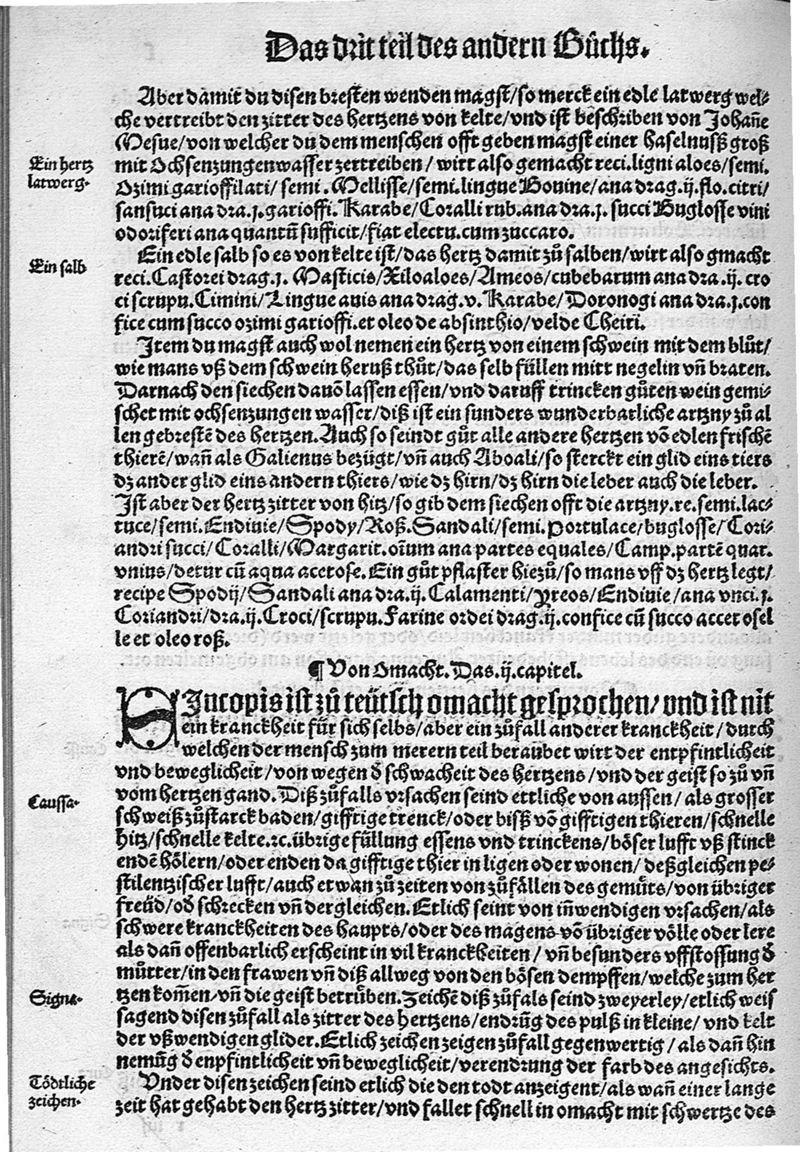 Das drit teil des andern Bůchs.
Aber damit̄ du disen bresten wenden magst/so merck ein edle latwerg wel⸗
che vertreibt den zitter des hertzens von kelte/vnd ist beschriben von Johan̄e
Mesue/von welcher du dem menschen offt geben magst einer haselnuſſz groß
Ein hertz
latwerg.
mit Ochsenzungenwasser zertreiben/wirt also gemacht reci.ligni aloes/semi.
Ozimi gariofſilati/semi.Mellisse/semi.lingue Bouine/ana drag.ij.flo.citri/
sansuci ana dra.j.garioffi.Karabe/Coralli rub.ana dra.j. succi Buglosse vini
odoriferi ana quantū sufficit/fiat electu.cum zuccaro.
Ein salb
Ein edle salb so es von kelte ist/das hertz damit zů salben/wirt also gmacht
reci.Castorei drag.j. Masticis/Xiloaloes/Ameos/cubebarum ana dra.ij. cro
ci scrupu.Cimini/Lingue auis ana drag.v. Karabe/Doronogi ana dra.j.con
fice cum succo ozimi garioffi.et oleo de absinthio/vel de Cheiri.
Item du magst auch wol nemen ein hertz von einem schwein mit dem blůt/
wie mans vß dem schwein heruß thůt/das selb füllen mitt negelin vn̄ braten.
Darnach den siechen dauō lassen essen/vnd daruff trincken gůten wein gemi⸗
schet mit ochsenzungen wasser/diß ist ein sunders wunderbarliche artzny zů al
len gebrestē des hertzen.Auch so seindt gůt alle andere hertzen vō edlen frischē
thierē/wan̄ als Galienus bezügt/vn̄ auch Aboali/so sterckt ein glid eins tiers
dz ander glid eins andern thiers/wie dz hirn/dz hirn die leber auch die leber.
Ist aber der hertz zitter von hitz/so gib dem siechen offt die artzny.re.semi.lac⸗
tuce/semi.Endiuie/Spody/Roß.Sandali/semi.portulace/buglosse/Cori⸗
andri succi/Coralli/Margarit.oīum ana partes equales/Camp.partē quar.
vnius/detur cū aqua acetose.Ein gůt pflaster hiezů/so mans vff dz hertz legt/
recipe Spodij/Sandali ana dra.ij.Calamenti/Yreos/Endiuie/ana vnci.j.
Coriandri/dra.ij.Croci/scrupu.Farine ordei drag.ij.confice cū succo accetosel
le et oleo roß.
¶ Von Omacht. Das.ij.capitel.
SIncopis ist zů teütsch omacht gesprochen/vnd ist nit
ein kranckheit für sich selbs/aber ein zůfall anderer kranckheit/durch
welchen der mensch zum merern teil beraubet wirt der entpfintlicheit
vnd beweglicheit/von wegen d̄ schwacheit des hertzens/vnd der geist so zů vn̄
Caussa.
vom hertzen gand.Diß zůfalls vrsachen seind ettliche von aussen/als grosser
schweiß zůstarck baden/gifftige trenck/oder bissz vō gifftigen thieren/schnelle
hitz/schnelle kelte.ꝛc.übrige füllung essens vnd trinckens/böser lufft vß stinck
endē hölern/oder enden da gifftige thier in ligen oder wonen/deßgleichen pe⸗
stilentzischer lufft/auch etwan zů zeiten von zůfällen des gemüts/von übriger
freüd/od̄ schrecken vn̄ dergleichen.Etlich seint von in̄wendigen vrsachen/als
schwere kranckheiten des haupts/oder des magens vō übriger völle oder lere
als dan̄ offenbarlich erscheint in vil kranckheiten/vn̄ besunders vffstossung d̄
můtter/in den frawen vn̄ diß allweg von den bösen dempffen/welche zum her
Signa.
tzen kom̄en/vn̄ die geist betrüben.Zeichē diß zůfals seind zweyerley/etlich weis
sagend disen zůfall als zitter des hertzens/endrūg des pulß in kleine/vnd kelt
der vßwendigen glider.Etlich zeichen zeigen zůfall gegenwertig/als dan̄ hin
nemūg d̄ enpfintlicheit vn̄ beweglicheit/verendrung der farb des angesichts.
Tödtliche
zeichen.
Vnder disen zeichen seind etlich die den todt anzeigent/als wan̄ einer lange
zeit hat gehabt den hertz zitter/vnd fallet schnell in omacht mit schwertze des